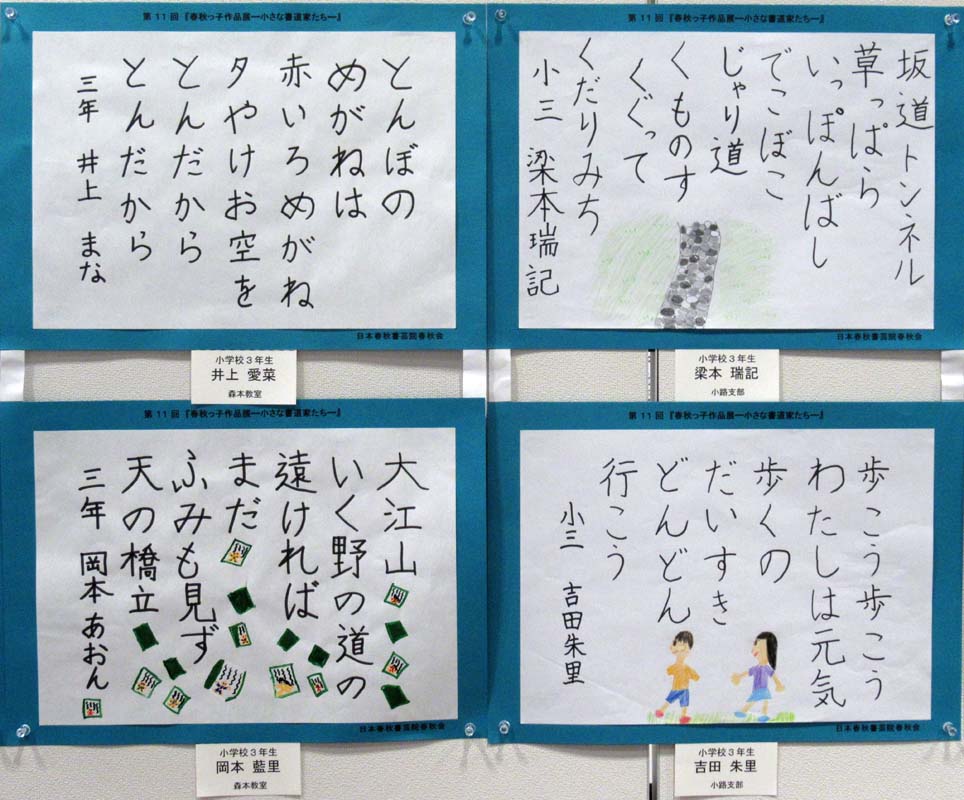 第11回『春秋っ子作品展ー小さな書道家たちー』
とんぼの
めがねは
赤いろめがね
夕やけお空を
とんだから
とんだから
三年 井上 まな
日本春秋書芸院春秋会
小学校3年生
井上 愛菜
森本教室
第11回『春秋っ子作品展ー小さな書道家たちー』
坂道トンネル
草っぱら
いっぽんばし
でこぼこ
じゃり道
くものす
くぐって
くだりみち
小三 梁本瑞記
日本春秋書芸院春秋会
小学校3年生
梁本 瑞記
小路支部
第11回『春秋っ子作品展ー小さな書道家たちー』
大江山
いく野の道の
遠ければ
まだ
ふみも見ず
天の橋立
三年 岡本あおん
日本春秋書芸院春秋会
小学校3年生
岡本 藍里
森本教室
第11回『春秋っ子作品展ー小さな書道家たちー』
歩こう歩こう
わたしは元気
歩くの
だいすき
どんどん
行こう
小三 吉田朱里
日本春秋書芸院春秋会
小学校3年生
吉田 朱里
小路支部